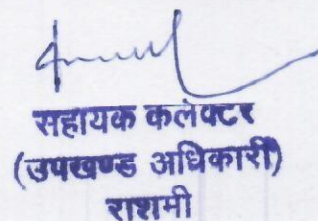 सहायक कलेक्टर
(उपखण्ड अधिकारी)
राशमी